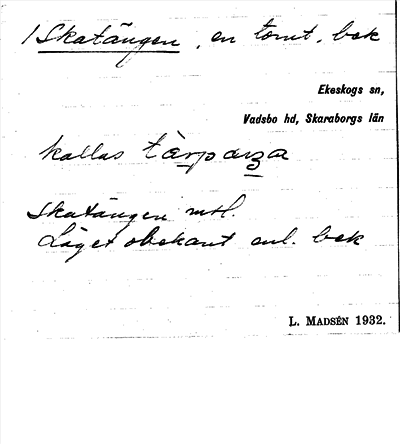 /Skatängen, en tomt, bek
Ekeskogs sn,
Vadsbo hd, Skaraborgs län
kallas tàrparza
Skatängen mtl.
Läget obekant enl. bek
L. MADSÉN 1932.